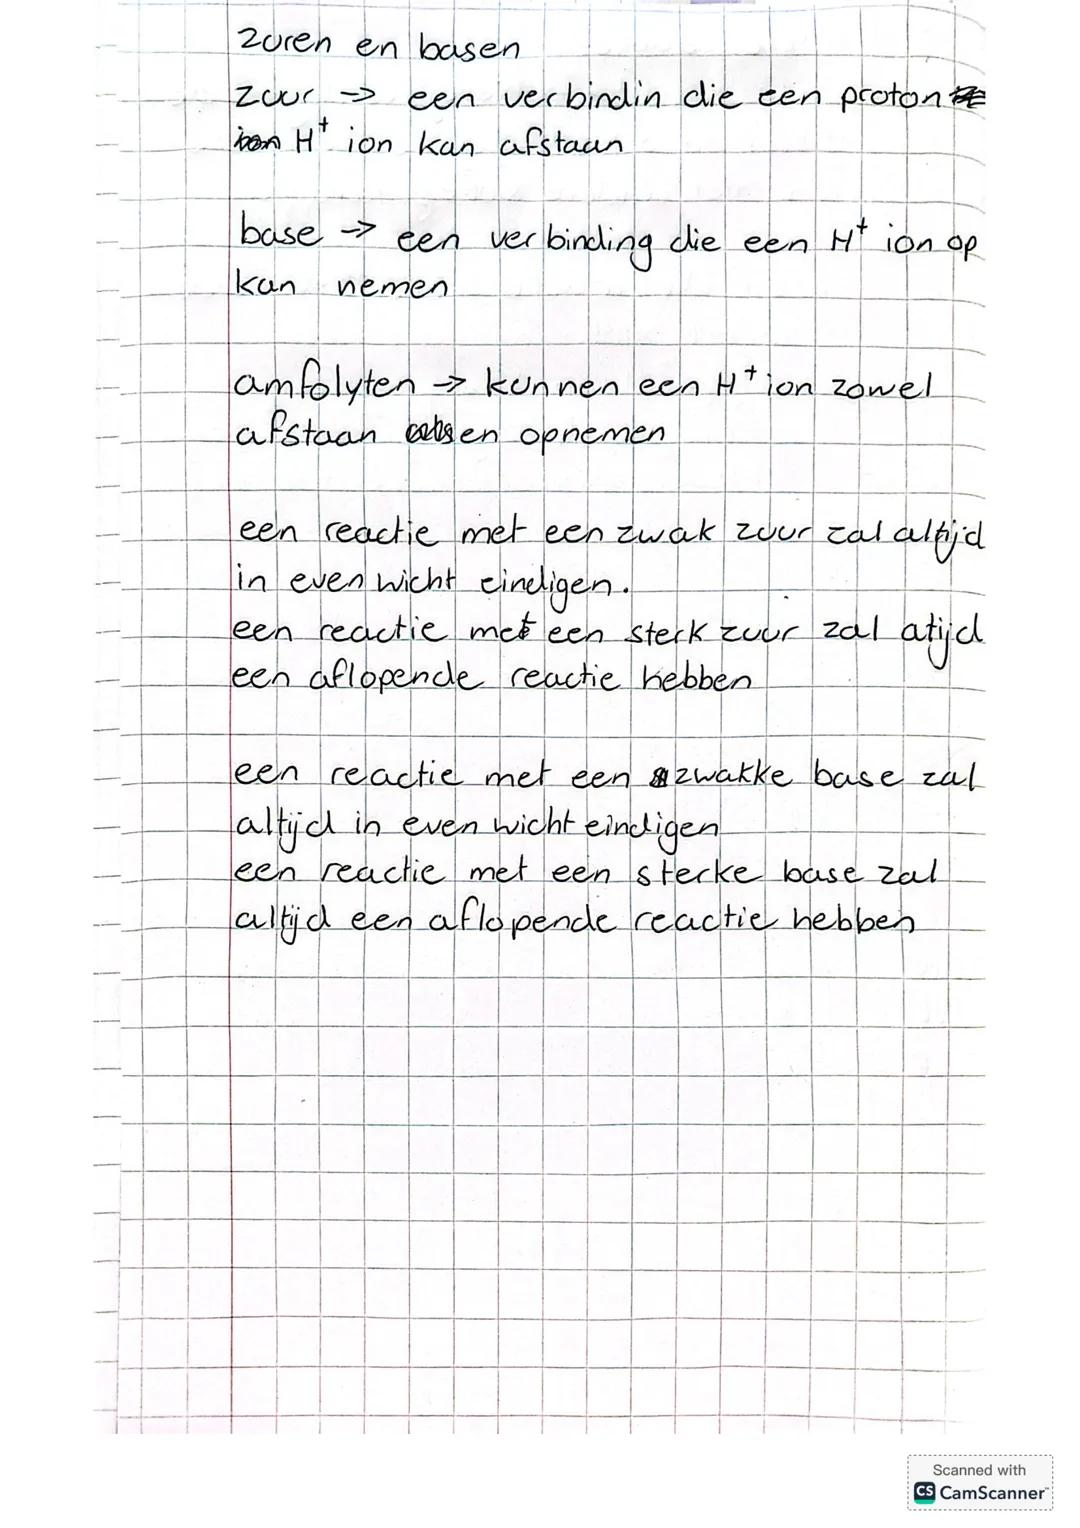 zuren en basen
zuur → een verbindin die een proton
H⁺ ion kan afstaan
base → een verbinding die een H⁺ ion op
kan nemen
amfolyten → kunnen een H⁺ ion zowel
afstaan en opnemen
een reactie met een zwak zuur zal altijd
in evenwicht eindigen.
een reactie met een sterk zuur zal atijd
een aflopende reactie hebben
een reactie met een zwakke base zal
altijd in evenwicht eindigen
een reactie met een sterke base zal
altijd een aflopende reactie hebben
Scanned with
CS CamScanner